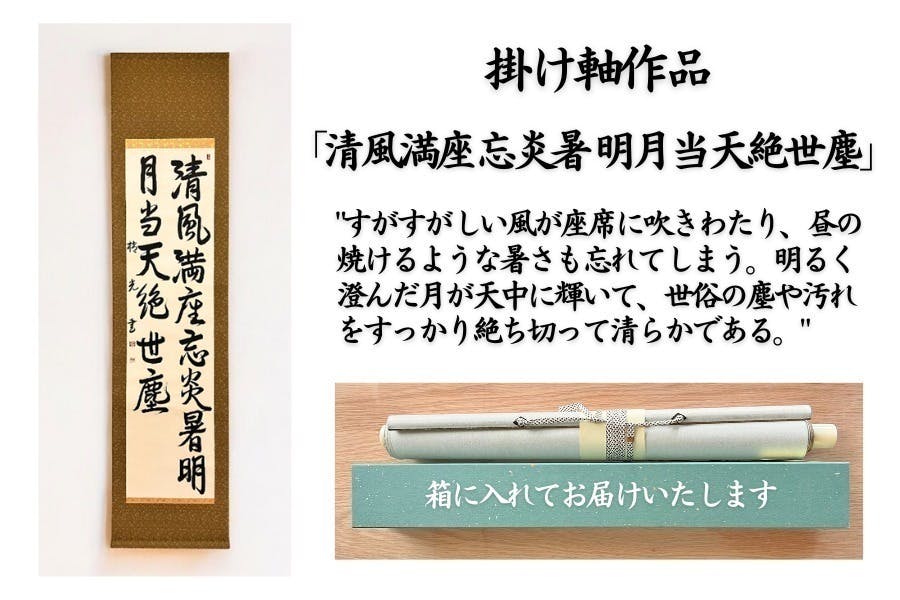 清風満座忘炎暑明
月当天絶世塵
掛け軸作品
「清風満座忘炎暑 明月当天絶世塵」
"すがすがしい風が座席に吹きわたり、昼の
焼けるような暑さも忘れてしまう。明るく
澄んだ月が天中に輝いて、世俗の塵や汚れ
をすっかり絶ち切って清らかである。"
箱に入れてお届けいたします